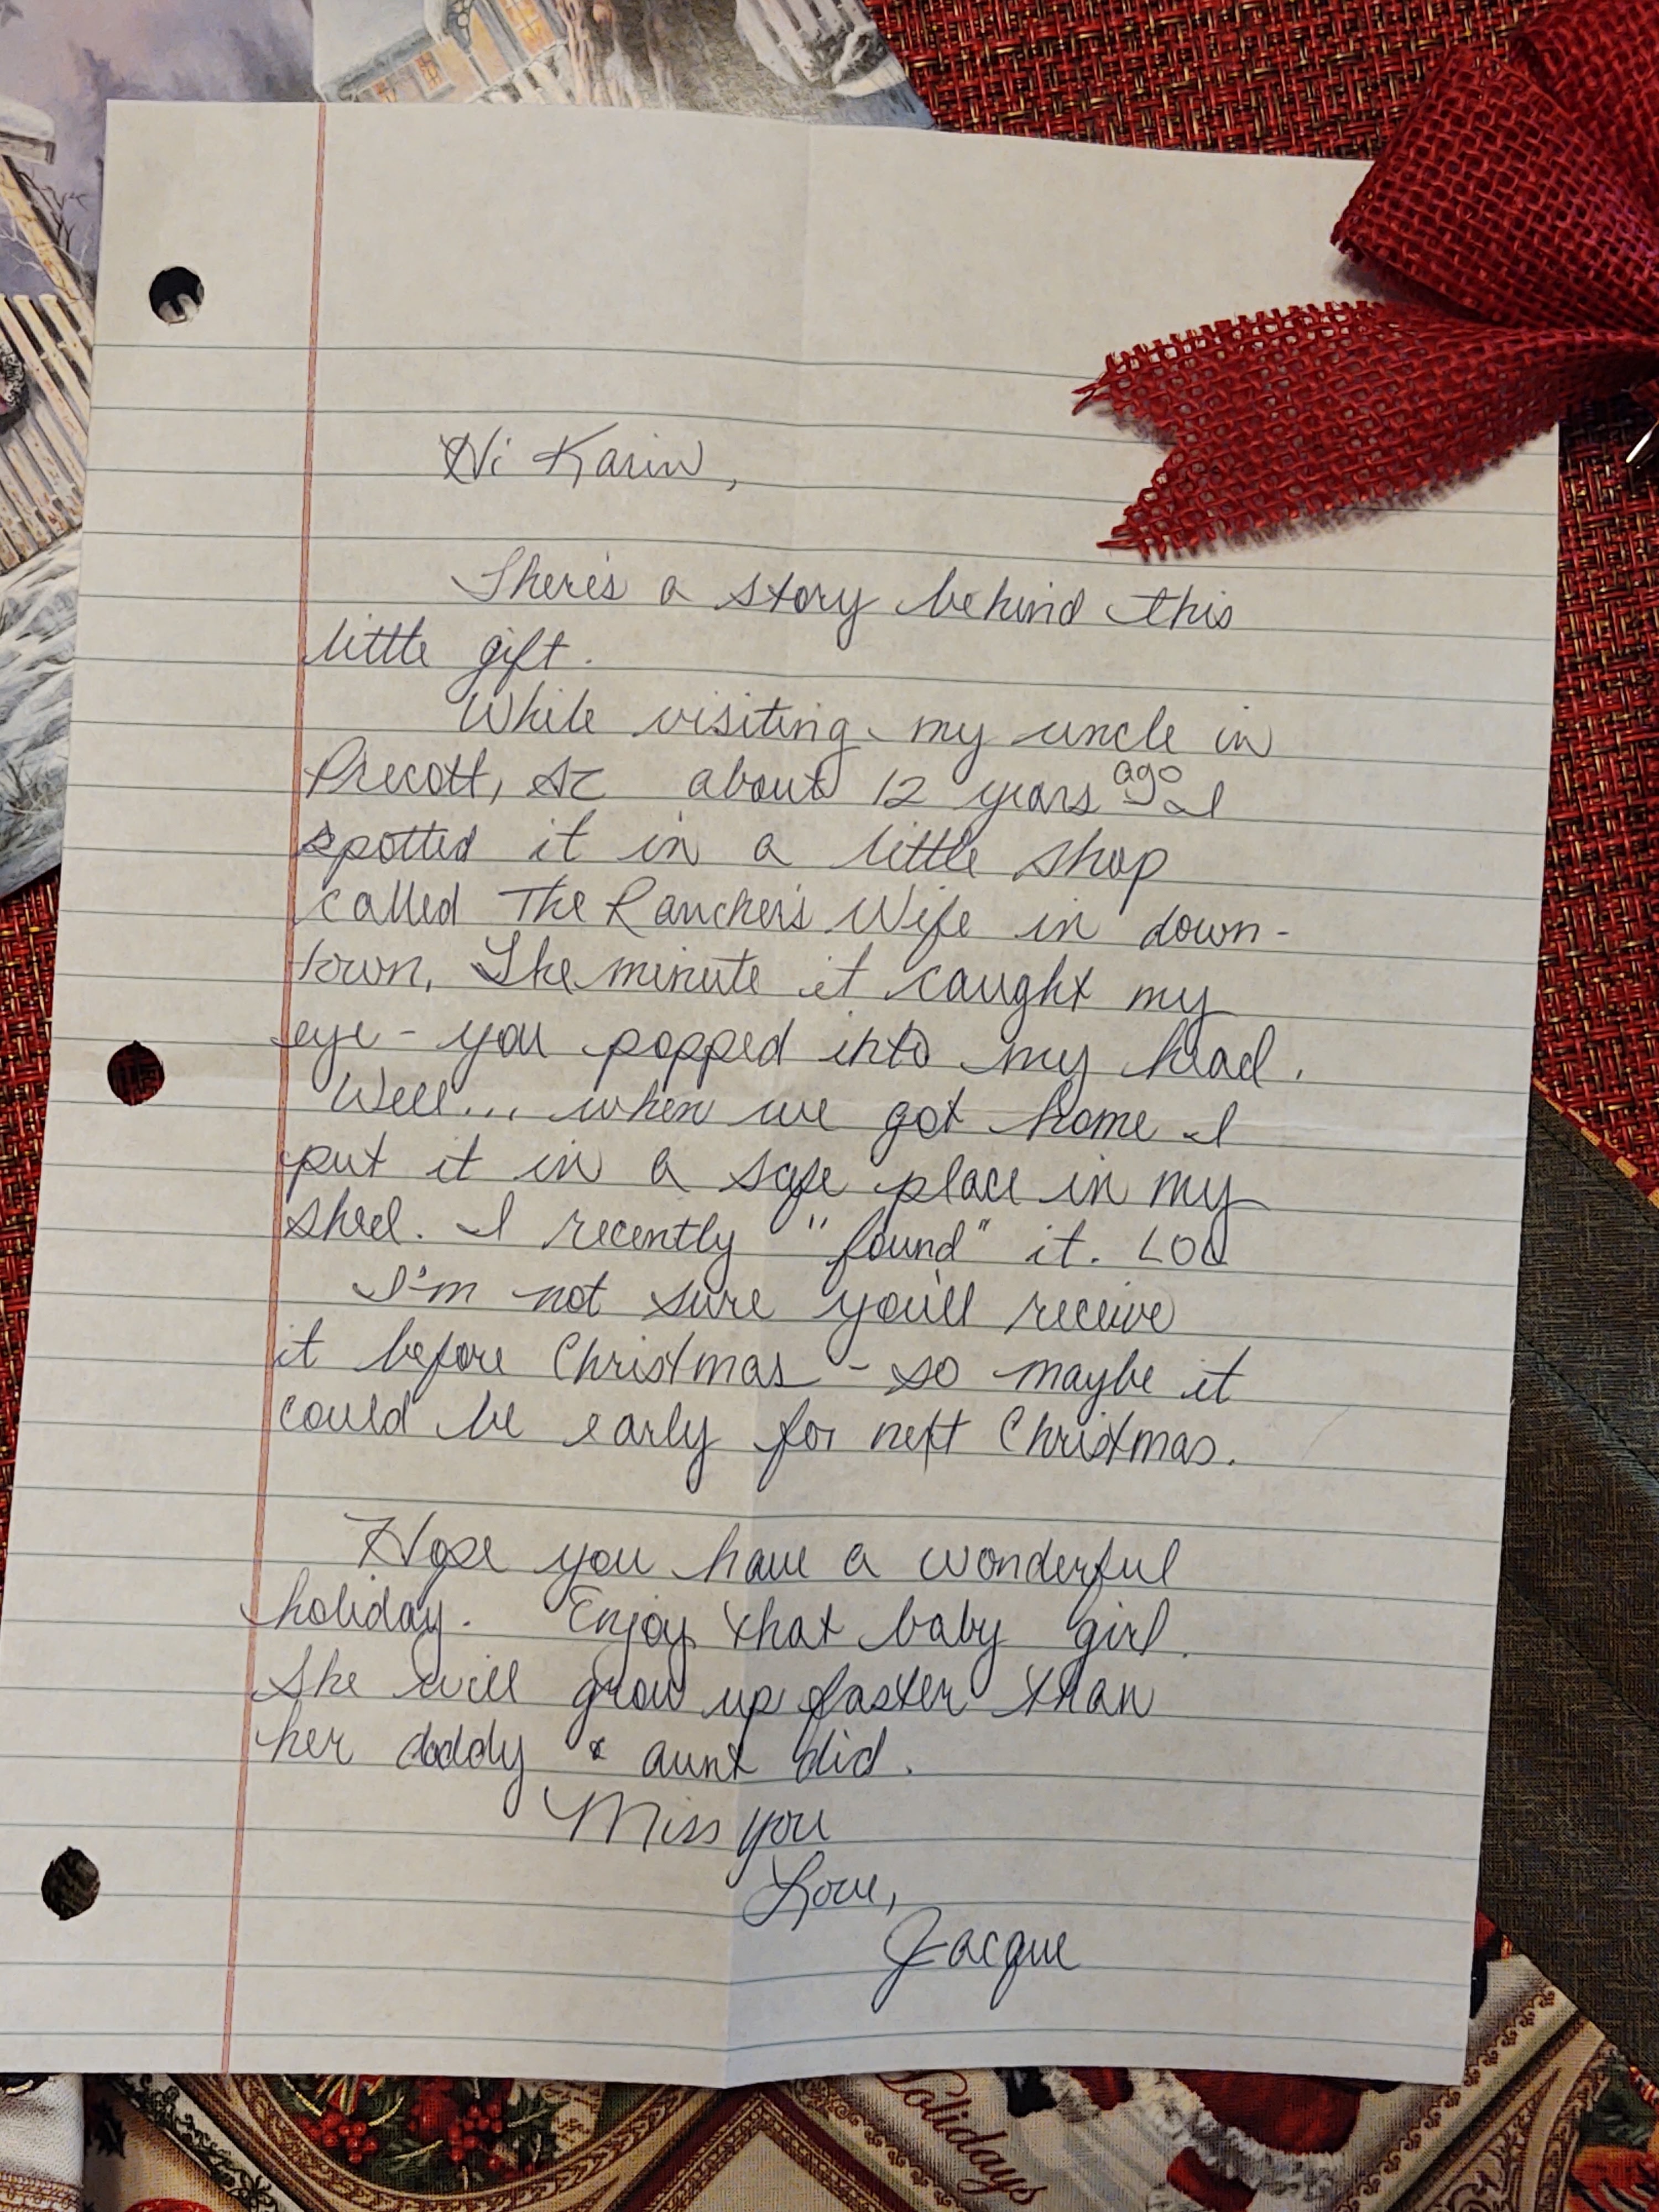 Hi Karin,
There's a story behind this
little gift.
While visiting my uncle in
Precott, AZ about 12 years ago I
spotted it in a little shop
called The Rancher's Wife in down-
town. The minute it caught my
eye - you popped into my head.
Well... when we got home I
put it in a safe place in my
shed. I recently "found" it. LOL
I'm not sure you'll receive
it before Christmas - so maybe it
could be early for next Christmas.
Hope you have a wonderful
holiday. Enjoy that baby girl.
She will grow up faster than
her daddy & aunt did.
Miss you
Love,
Jacque
Holidays